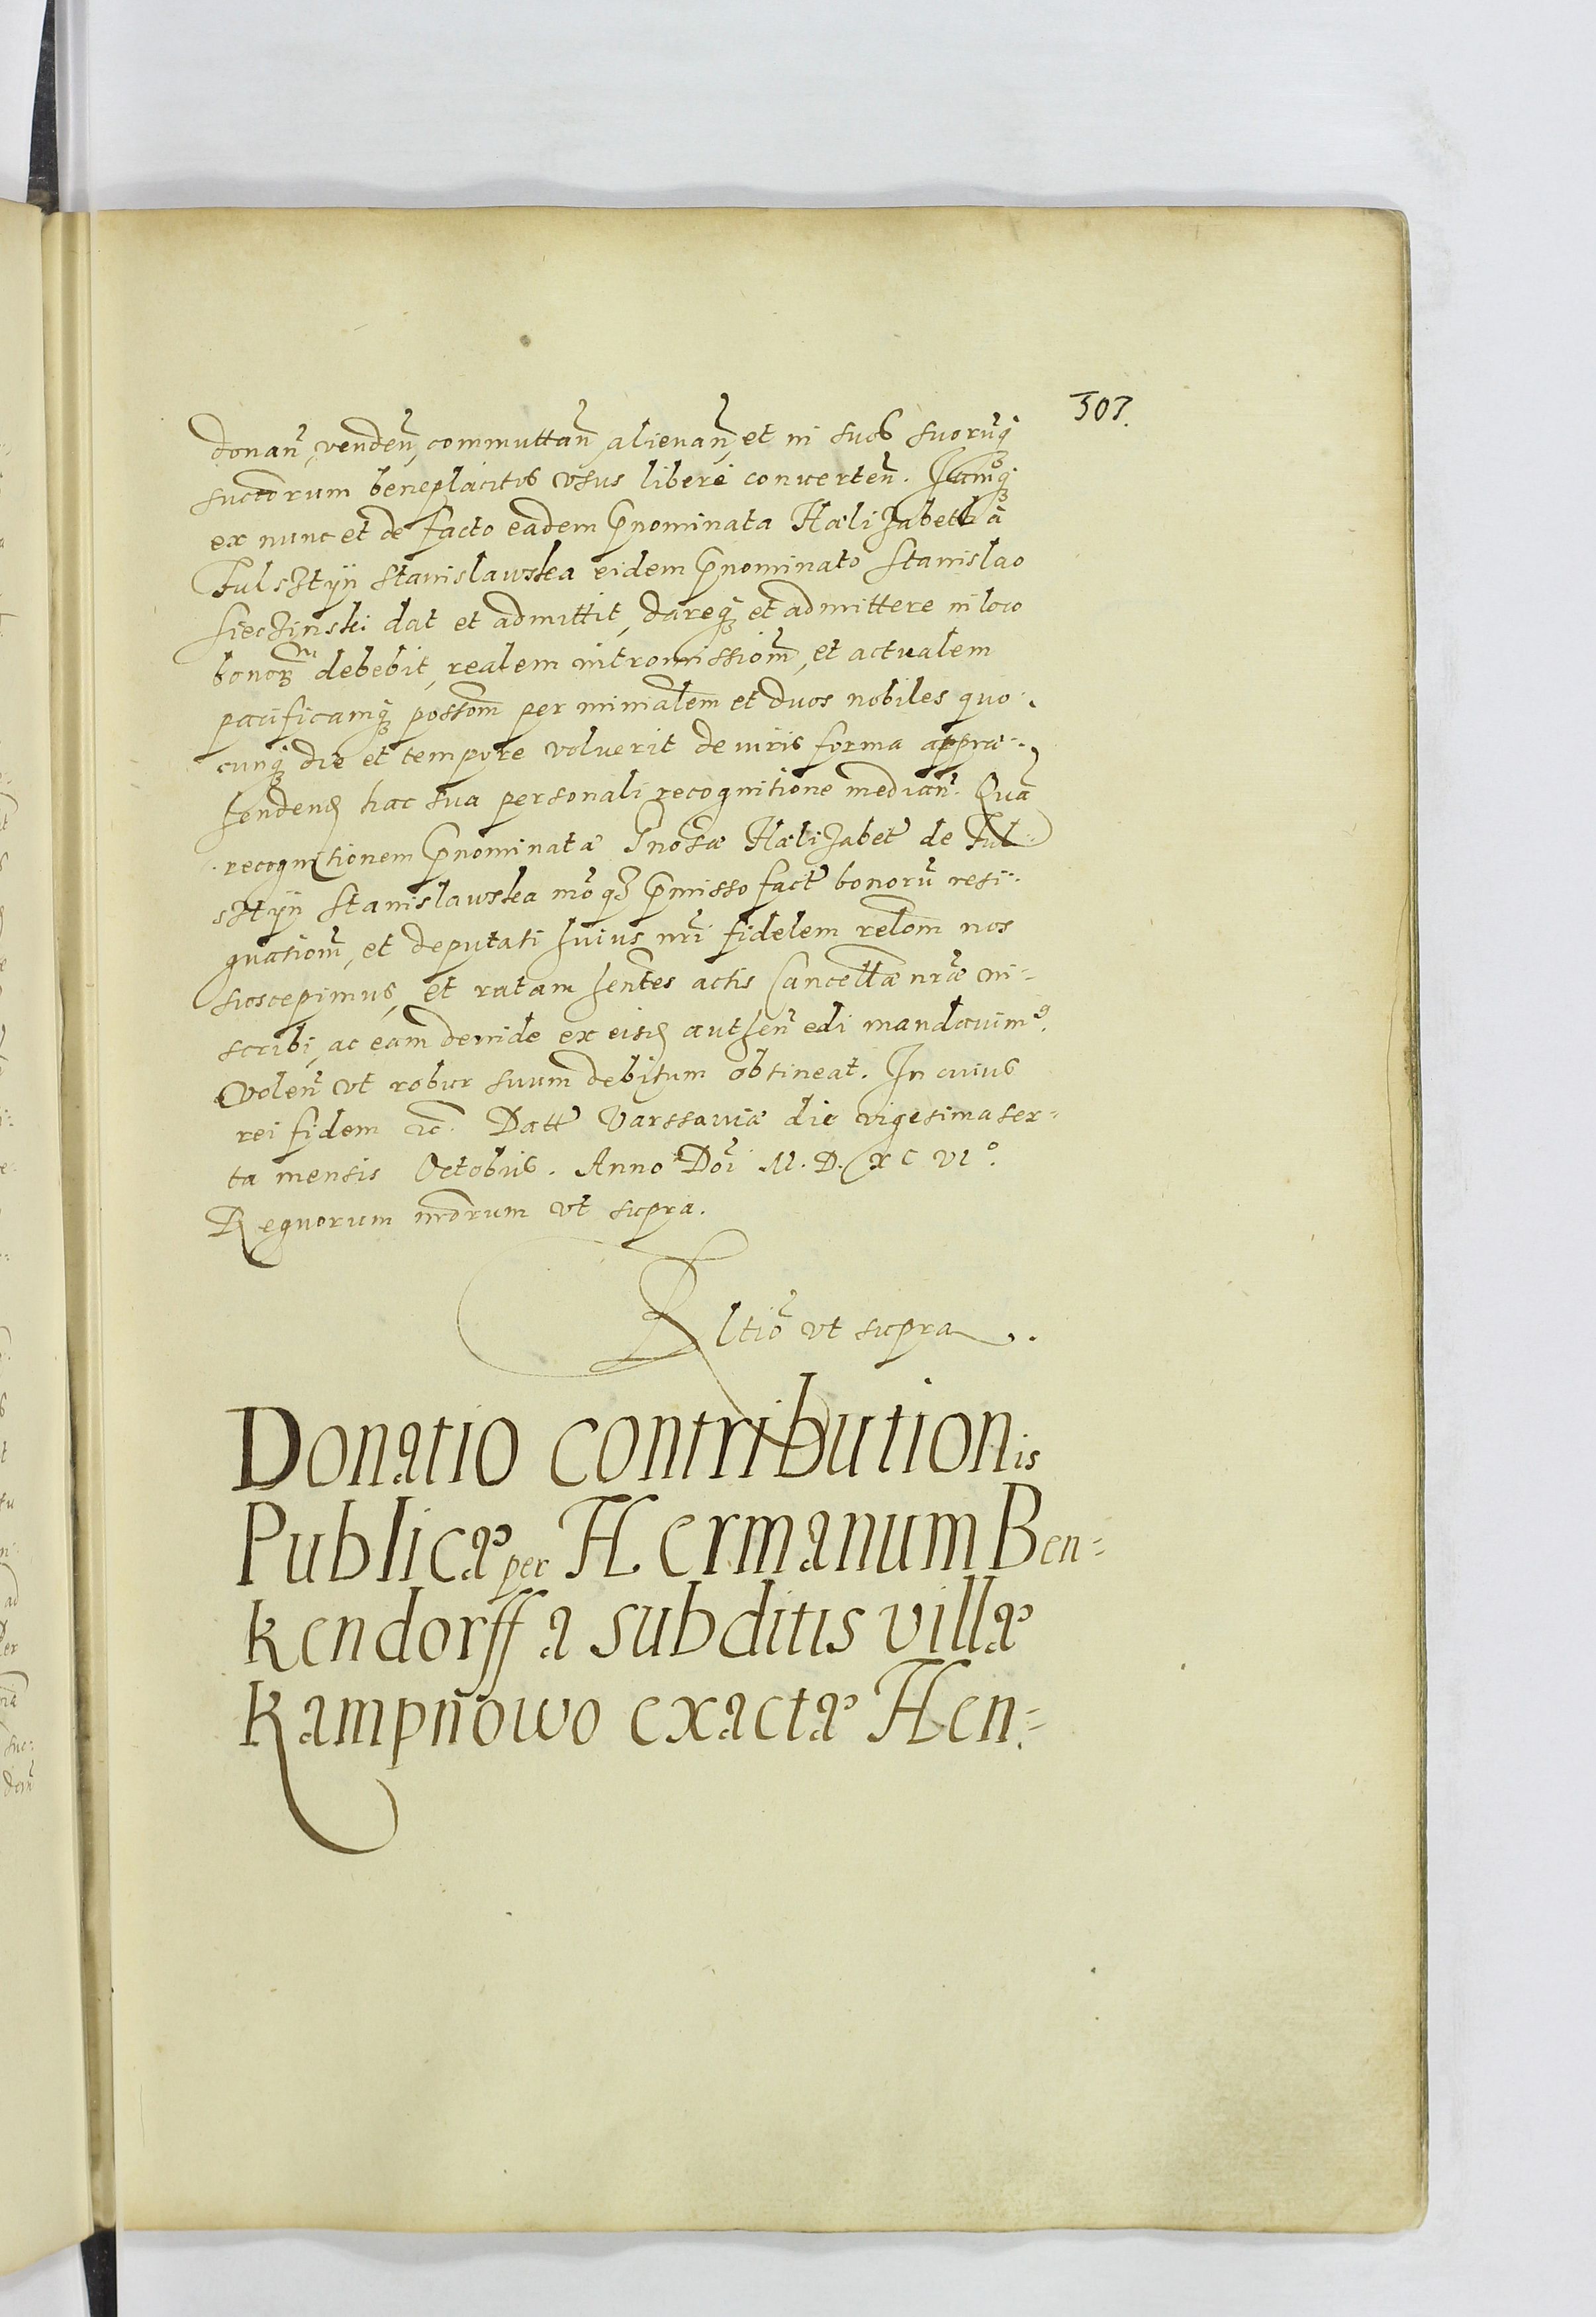 307.
donañ, vendeñ, commuttañ, alienañ, et in suos suorũq̃
succorum beneplacitos usus liberè conuerteñ. Jamq̃
ex nunc et de facto eadem p̃nominata Hælizabeth à
Fulsztÿn Stanislawska eidem p̃nominato Stanislao
Sieczinski dat et admittit, dareq̃ et admittere in loco
bonorũ debebit, realem intromissiom̃, et actualem
pacificamq̃ possom̃ per minr̃alem et duos nobiles quo-
cunq̃ die et tempore voluerit de iuris forma appræ-
hendend hac sua personali recognitione mediañ. Quã
recognitionem p̃nominatæ Gnosæ Hælizabet̃ de Ful-
sztÿn Stanislawska mõ q̃ p̃misso fact̃ bonorũ resi-
gnatiom̃, et deputati huius nr̃i fidelem relom̃ nos
suscepimus, et ratam hentes actis Cancellæ nr̃æ in-
scribi, ac eam deinde ex eisd autheñ edi mandauim9.
Voleñ ut robur suum debitum obtineat. In cuius
rei fidem etc. Datt̃ Varssauiæ die vigesima sex-
ta mensis Octobris. Anno Doĩ M. D. XC VI°.
Regnorum nrõrum ut supra.
Rltiõ ut supra.
Donatio contributionis
Publicæ per Hermanum Ben-
kendorff a subditis villæ
Kampñowo exactæ Hen-